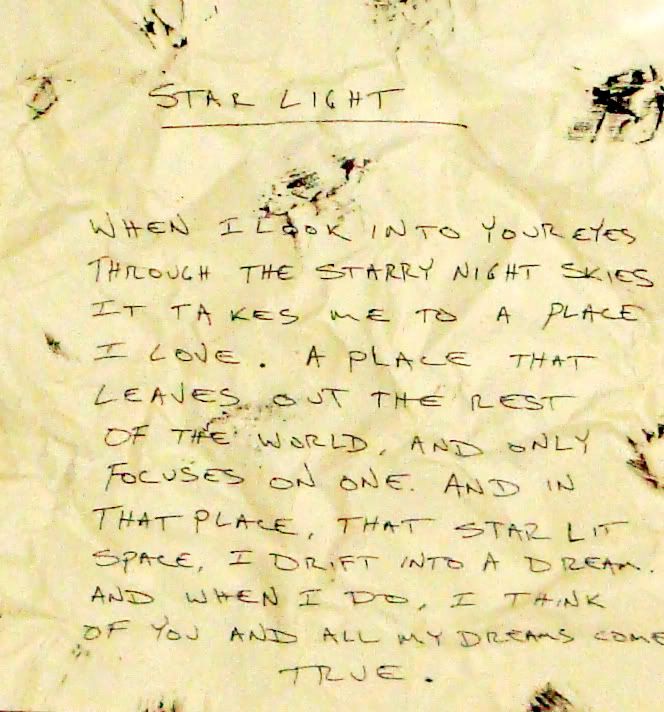 STAR LIGHT
WHEN I LOOK INTO YOUR EYES
THROUGH THE STARRY NIGHT SKIES
IT TAKES ME TO A PLACE
I LOVE. A PLACE THAT
LEAVES OUT THE REST
OF THE WORLD, AND ONLY
FOCUSES ON ONE. AND IN
THAT PLACE, THAT STAR LIT
SPACE, I DRIFT INTO A DREAM.
AND WHEN I DO, I THINK
OF YOU AND ALL MY DREAMS COME
TRUE.